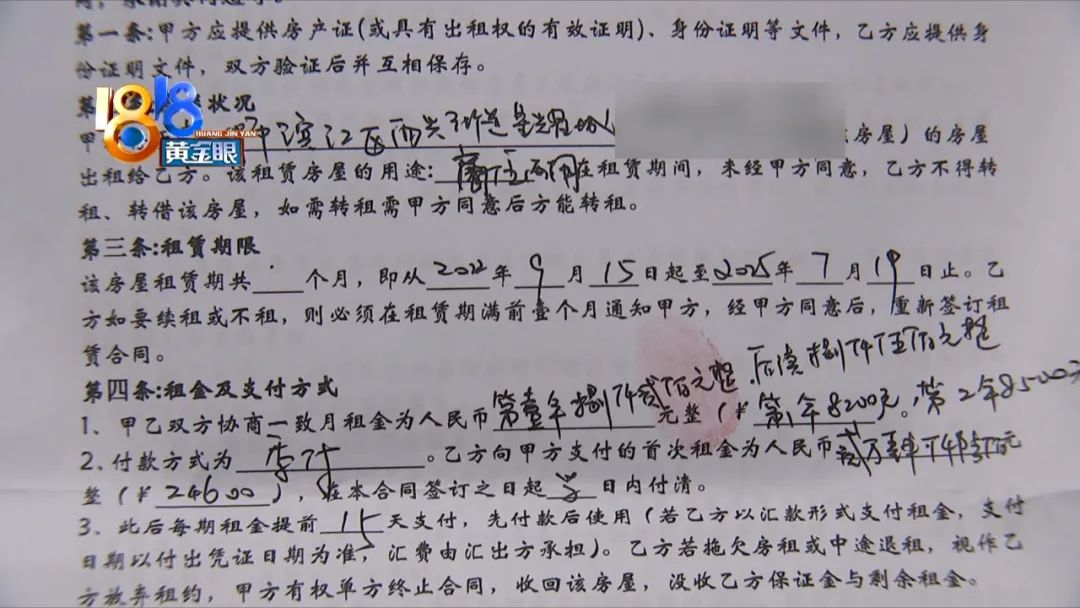 第一条:甲方应提供房产证(或具有出租权的有效证明)、身份证明等文件，乙方应提供身
份证明文件，双方验证后并互相保存。
第 状况
1818
HUANG JIN YAN
黄金眼
甲 滨江区西兴街道 房屋）的房屋
出租给乙方。该租赁房屋的用途: 在租赁期间，未经甲方同意，乙方不得转
租、转借该房屋，如需转租需甲方同意后方能转租。
第三条:租赁期限
该房屋租赁期共 个月，即从2022年9月15日起至2025年7月19日止。乙
方如要续租或不租，则必须在租赁期满前壹个月通知甲方，经甲方同意后，重新签订租
赁合同。 后续捌仟伍佰元整
第四条:租金及支付方式
1、甲乙双方协商一致月租金为人民币第壹年捌仟贰佰元整 元整（¥第1年8200元。第2年8500元
2、付款方式为季付。乙方向甲方支付的首次租金为人民币贰万 元
整（¥24600），在本合同签订之日起 日内付清。
3、此后每期租金提前15天支付，先付款后使用（若乙方以汇款形式支付租金，支付
日期以付出凭证日期为准，汇费由汇出方承担）。乙方若拖欠房租或中途退租，视作乙
方放弃租约，甲方有权单方终止合同，收回该房屋，没收乙方保证金与剩余租金。